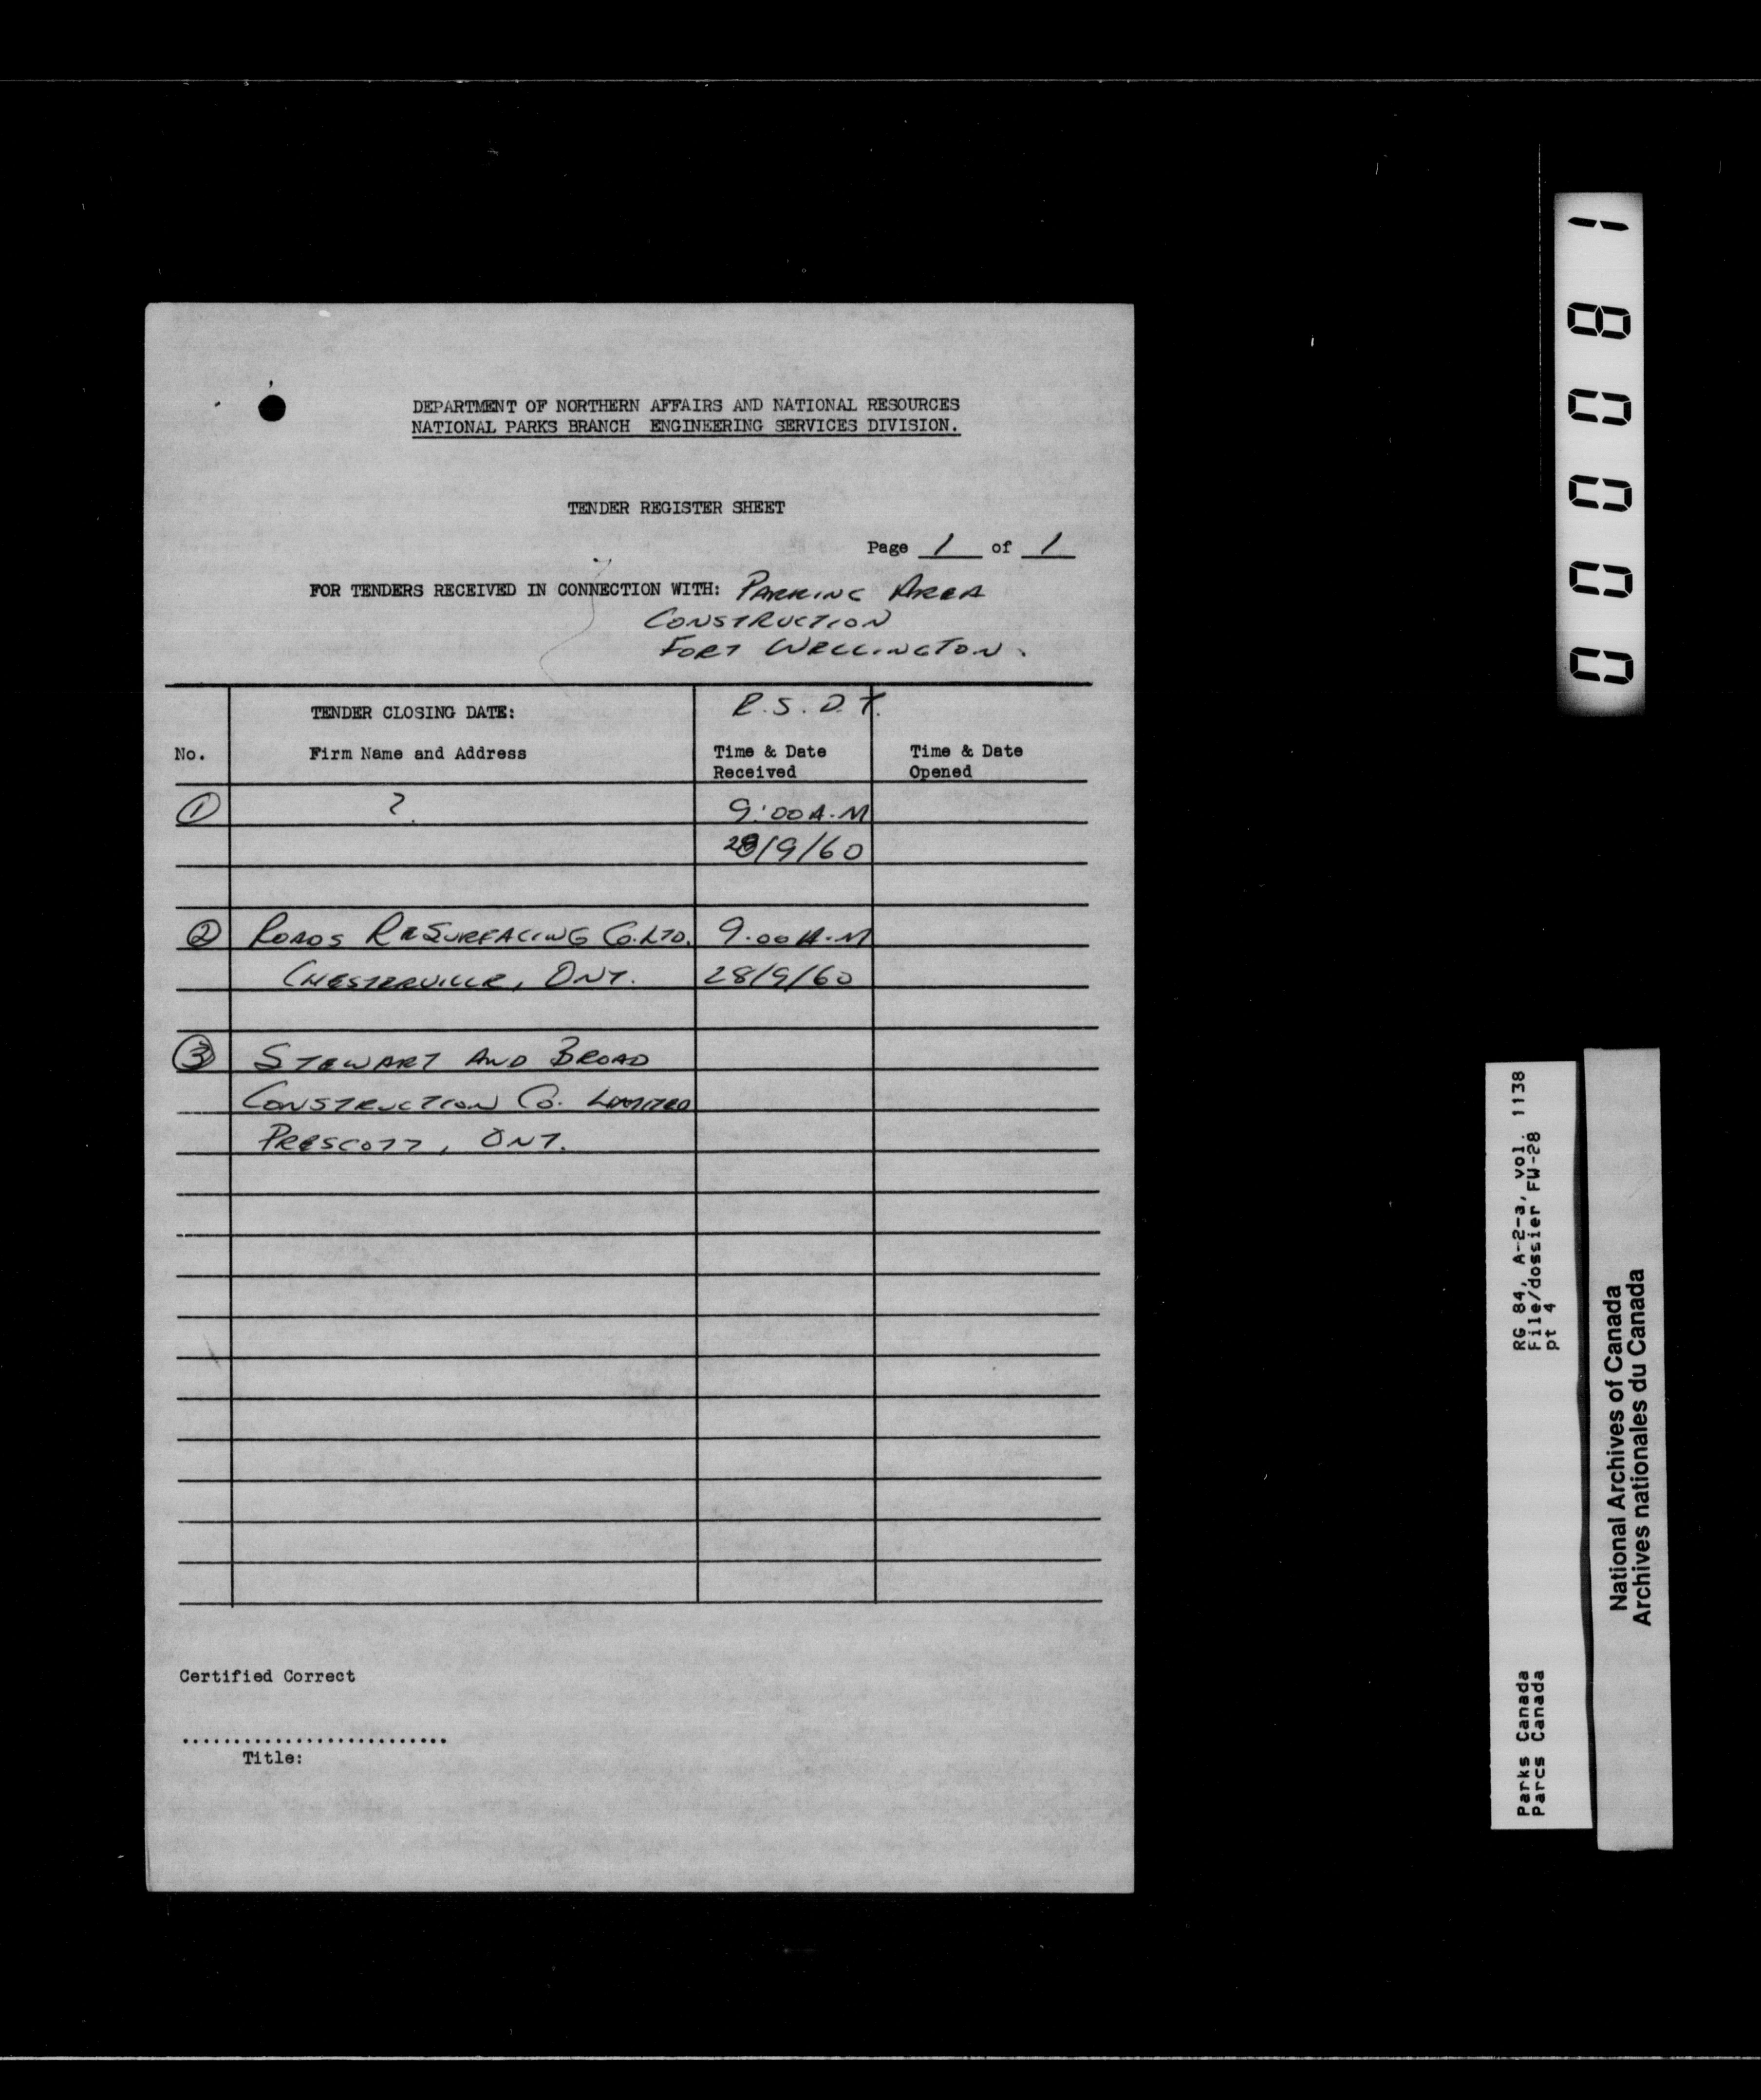 DEPARTMENT OF NORTHERN AFFAIRS AND NATIONAL RESOURCES
NATIONAL PARKS BRANCH ENGINEERING SERVICES DIVISION.
TENDER REGISTER SHEET
Page 1 of 1
FOR TENDERS RECEIVED IN CONNECTION WITH: PARKING AREA
CONSTRUCTION
FORT WELLINGTON.
TENDER CLOSING DATE: E.S.D.T.
No. Firm Name and Address Time & Date Received Time & Date Opened
1 ? 9:00 A.M
28/9/60
2 ROADS RESURFACING CO. LTD. 9.00 A.M
CHESTERVILLE, ONT. 28/9/60
3 STEWART AND BROAD
CONSTRUCTION CO. LIMITED
PRESCOTT, ONT.
Certified Correct
..........................
Title:
000081
RG 84, A-2-a, vol. 1138
File/dossier FW-28
pt 4
Parks Canada
Parcs Canada
National Archives of Canada
Archives nationales du Canada